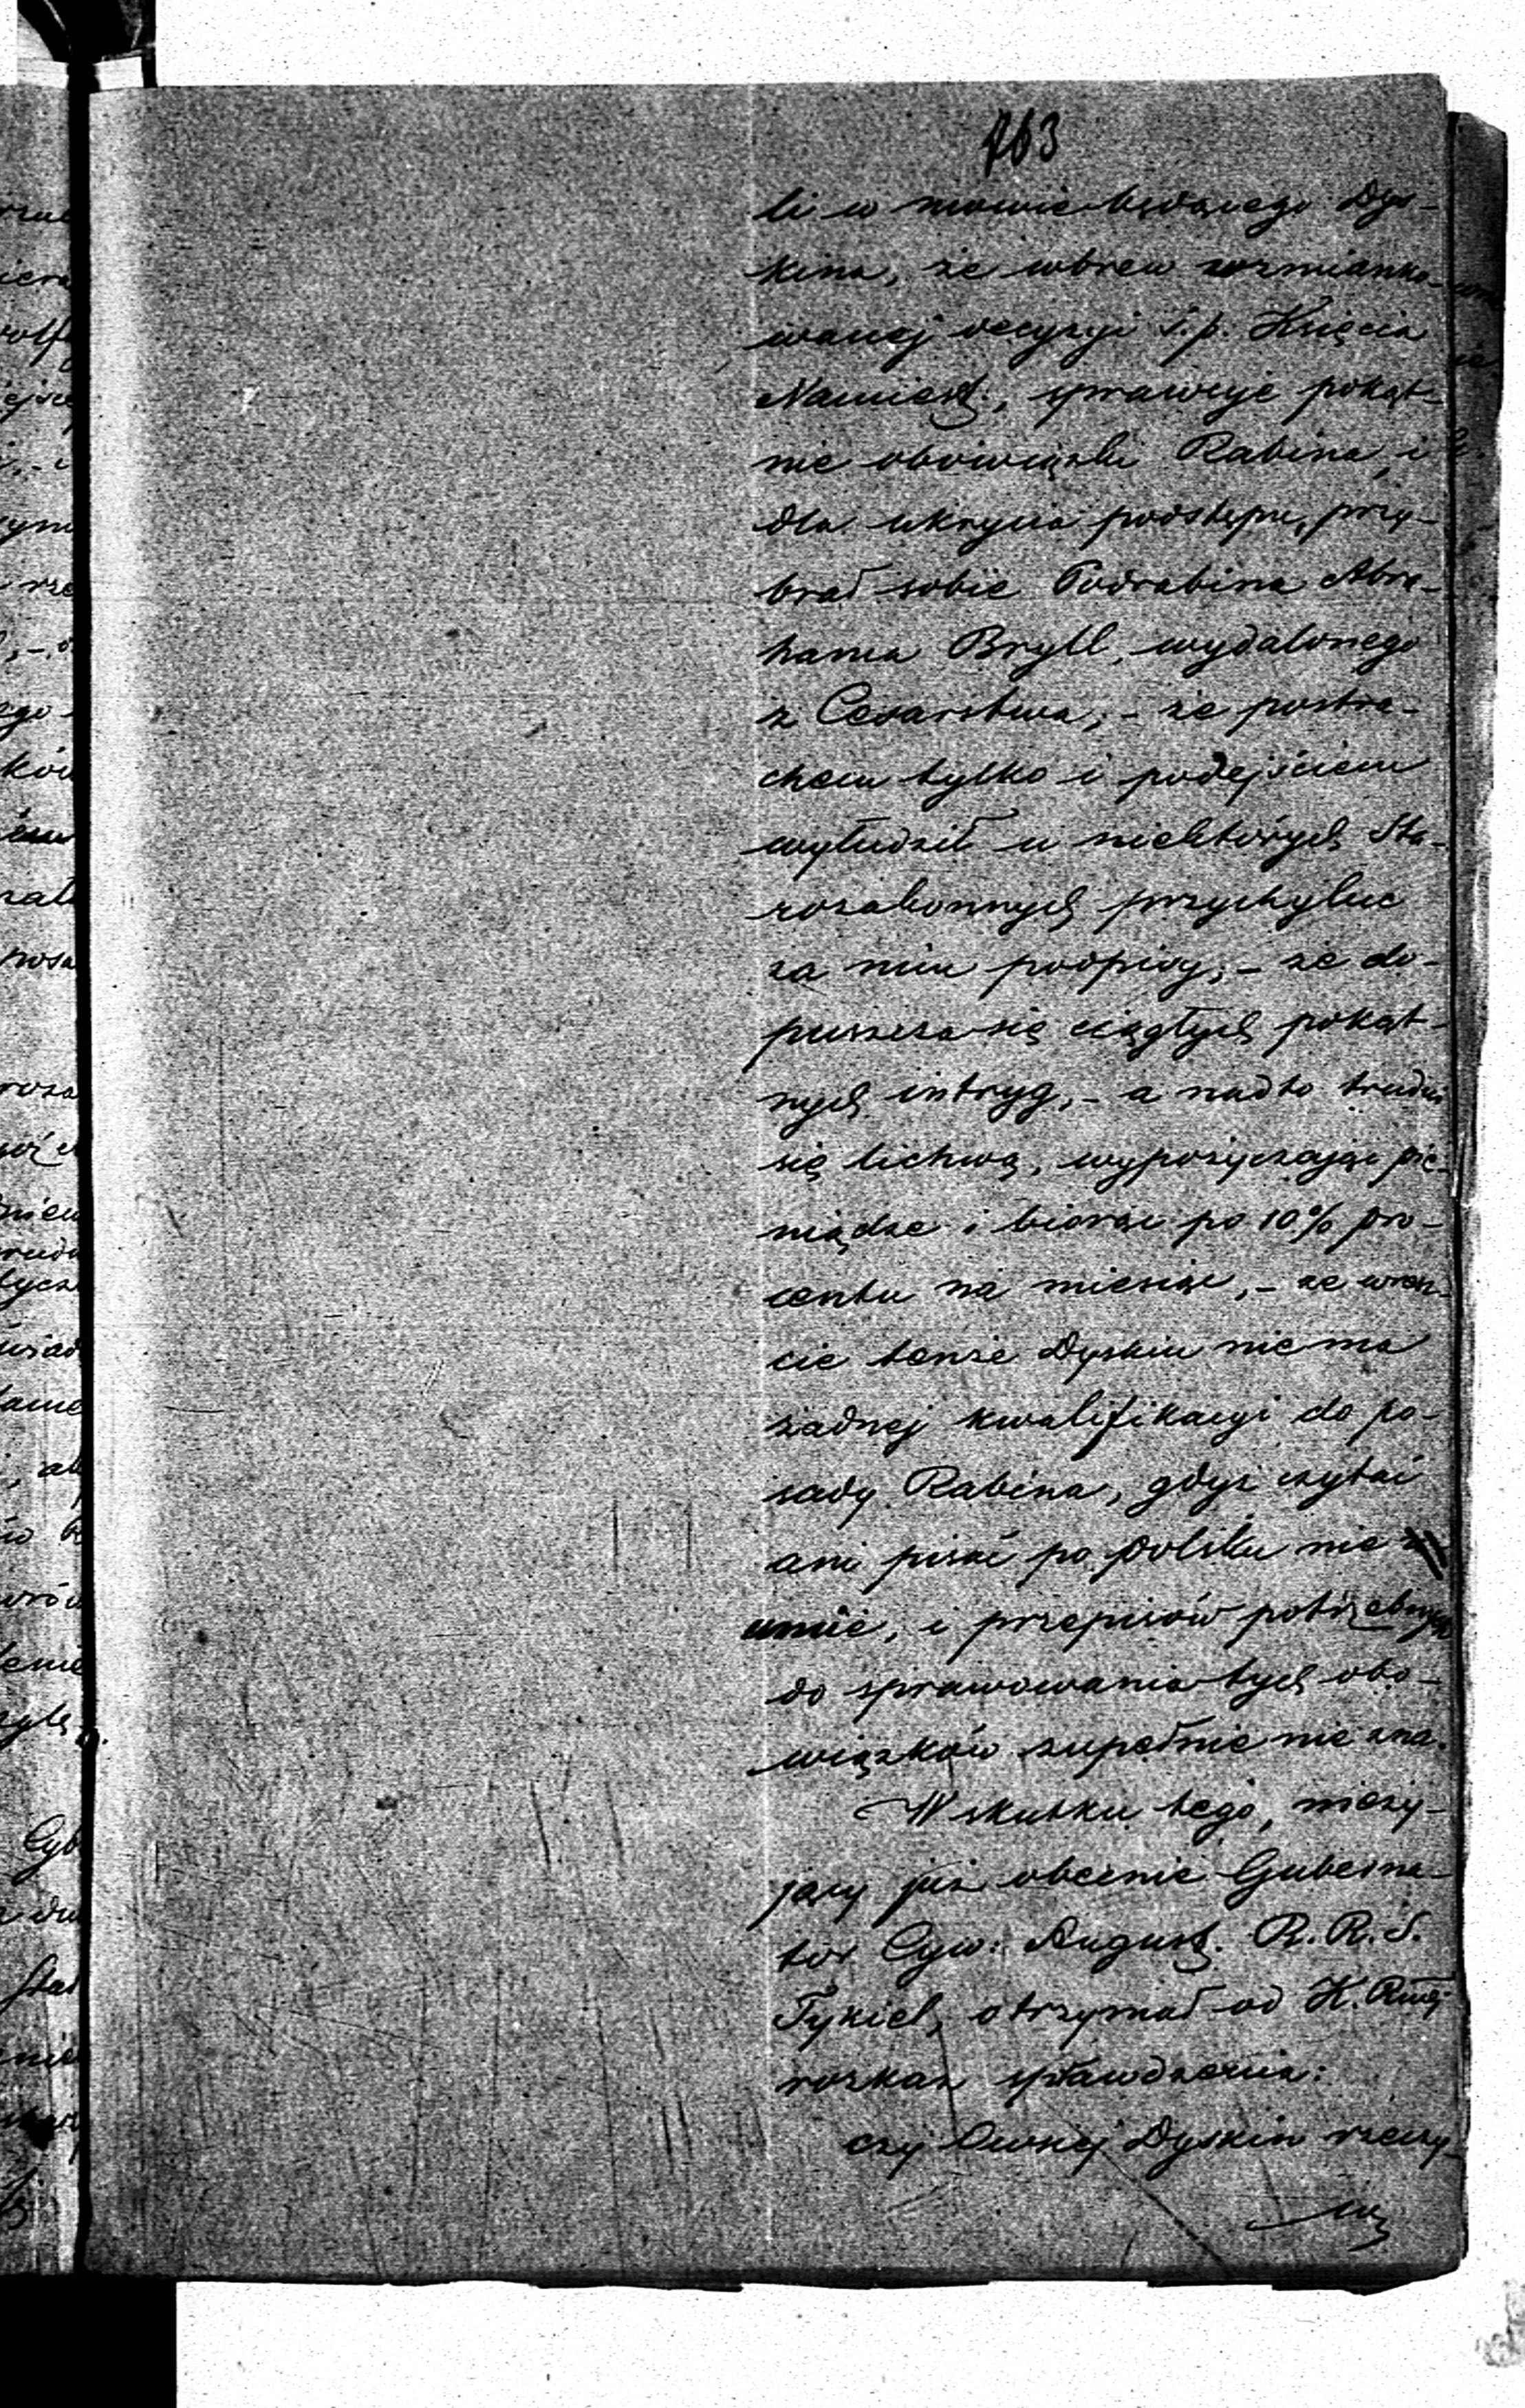 763
li w mowie będącego Dys-
kina, że wbrew wzmianko-
wanej decyzyi ś. p. Księcia
Namiest:, sprawuje pokąt-
nie obowiązki Rabina, i
dla ukrycia podstępu, przy-
brał sobie Podrabina Abra-
hama Bryll, wydalonego
z Cesarstwa, - że postra-
chem tylko i podejściem
wyłudził u niektórych Sta-
rozakonnych przychylne
za nim podpisy, - że do-
puszcza się ciągłych pokąt-
nych intryg, - a nadto trudni
się lichwą, wypożyczając pie-
niądze i biorąc po 10% pro-
centu na miesiąc, - że wresz-
cie tenże Dyskin nie ma
żadnej kwalifikacyi do po-
sady Rabina, gdyż czytać
ani pisać po polsku nie
umie, i przepisów potrzebnych
do sprawowania tych obo-
wiązków zupełnie nie zna.
W skutku tego, nieży-
jący już obecnie Guberna-
tor Cyw: August. R. R. S.
Tykiel, otrzymał od K. Rząd.
rozkaz sprawdzenia:
czy Owsiej Dyskin rzeczy-